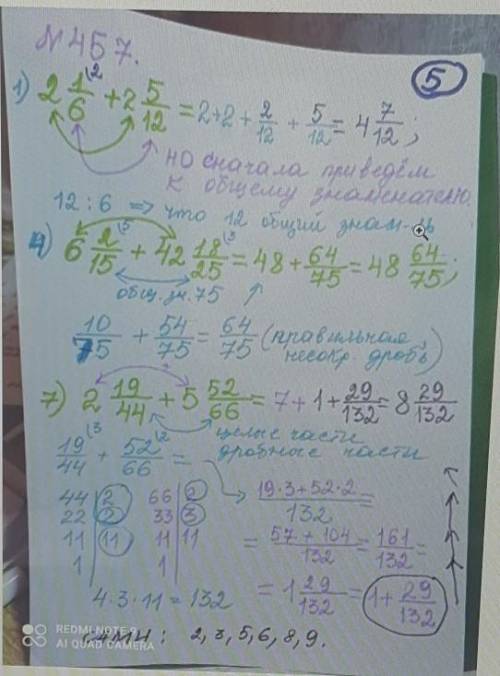 №457.
5
1) 2 1/6 \2 + 2 5/12 = 2+2 + 2/12 + 5/12 = 4 7/12;
но сначала приведём
к общему знаменателю.
12 : 6 => что 12 общий знам-ль
4) 6 2/15 \5 + 42 18/25 \3 = 48 + 64/75 = 48 64/75;
общ. зн. 75
10/75 + 54/75 = 64/75 (правильная
несокр. дробь)
7) 2 19/44 + 5 52/66 = 7 + 1 + 29/132 = 8 29/132
целые части
дробные части
19/44 \3 + 52/66 \2 =
19·3+52·2/132 =
44 | 2 66 | 2
22 | 2 33 | 3
11 | 11 11 | 11
1 | 1 |
= 57 + 104/132 = 161/132 =
= 1 29/132 = 1 + 29/132
4·3·11 = 132
REDMI NOTE 9
AI QUAD CAMERA
САМИ: 2, 3, 5, 6, 8, 9.